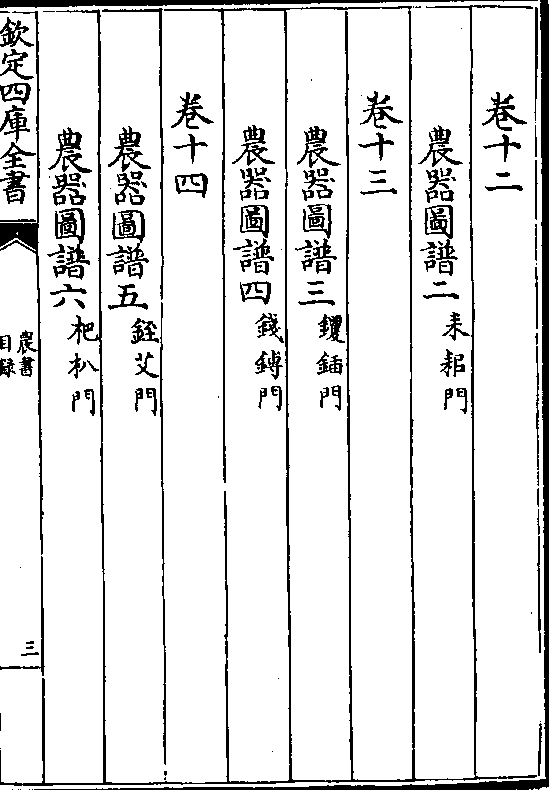 卷十二
農器圖譜二 耒耜門
卷十三
農器圖譜三 钁鍤門
農器圖譜四 錢鏄門
卷十四
農器圖譜五 銍艾門
農器圖譜六 杷朳門
欽定四庫全書
農書
目録
三